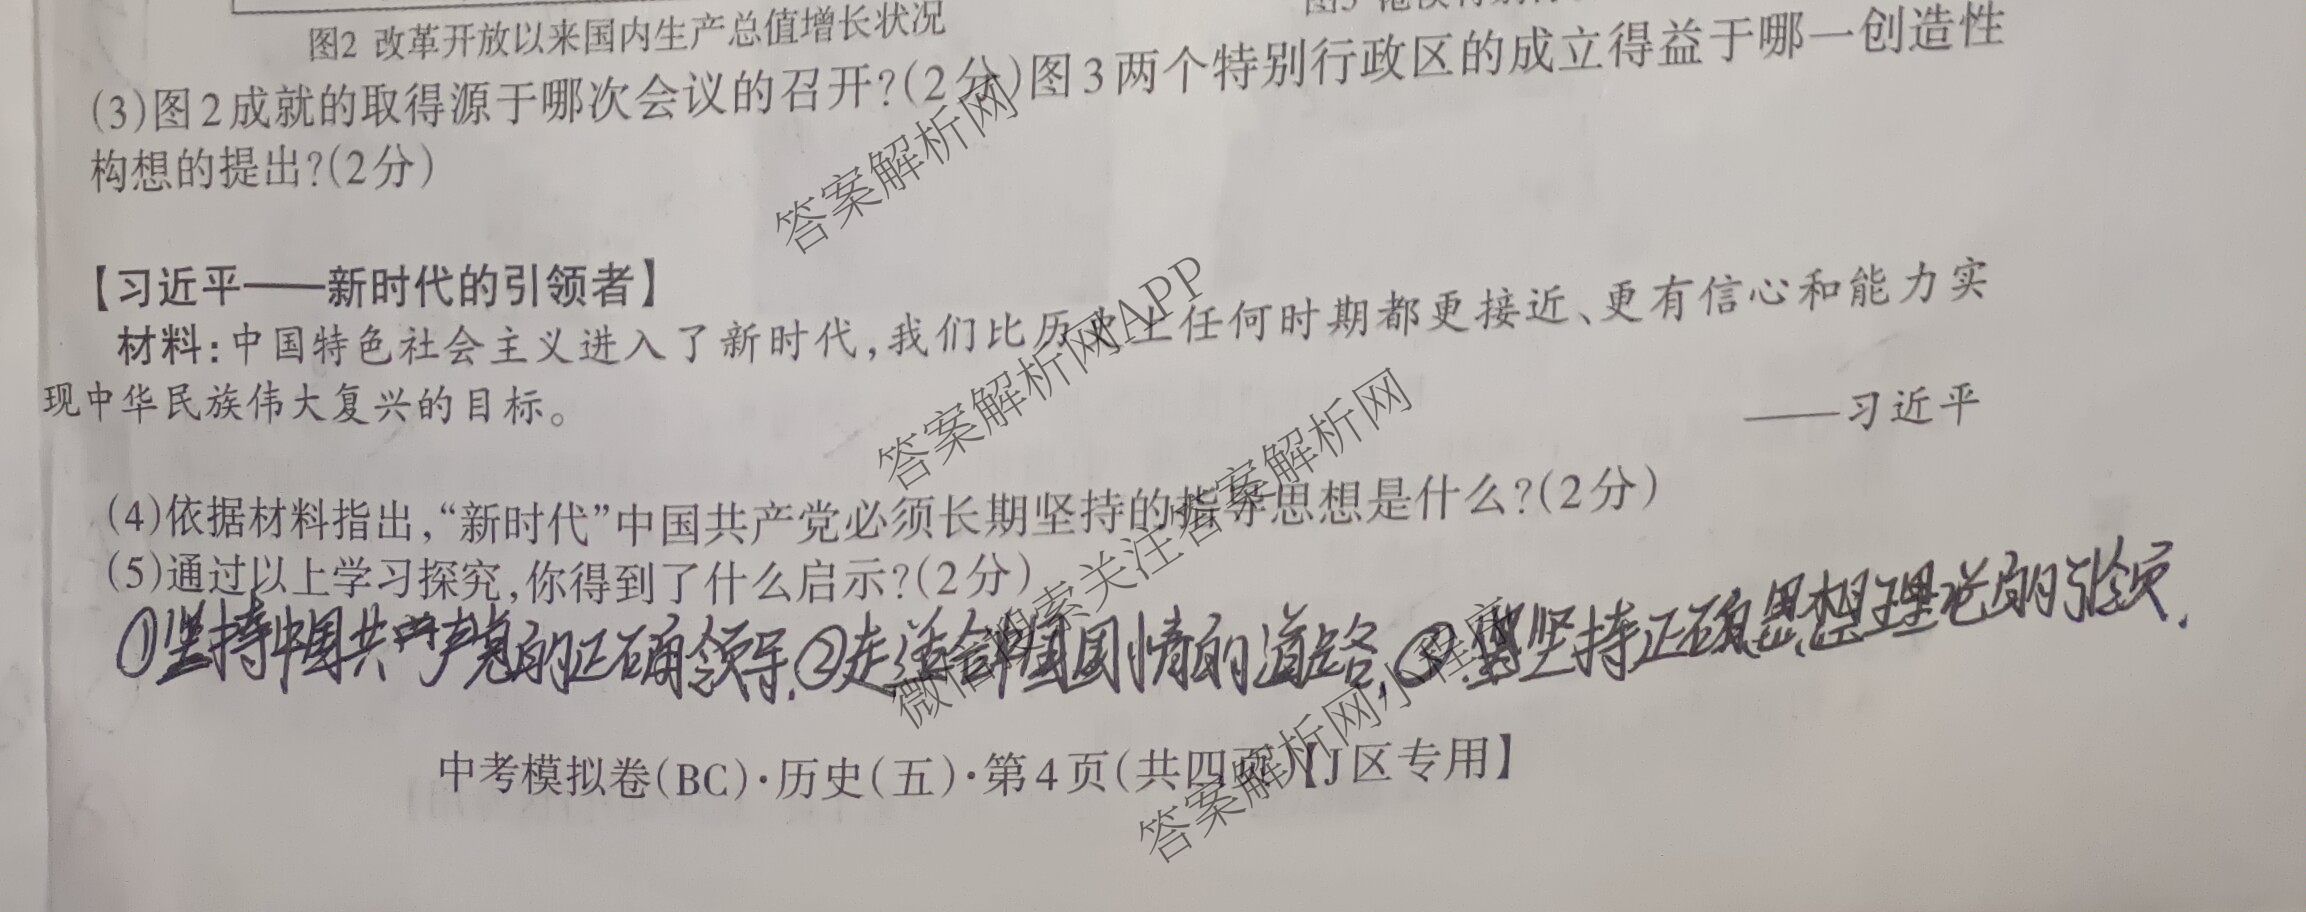 图2 改革开放以来国内生产总值增长状况
(3)图2成就的取得源于哪次会议的召开?(2分)图3两个特别行政区的成立得益于哪一创造性
构想的提出?(2分)
【习近平——新时代的引领者】
材料:中国特色社会主义进入了新时代,我们比历史上任何时期都更接近、更有信心和能力实
现中华民族伟大复兴的目标。
——习近平
(4)依据材料指出,“新时代”中国共产党必须长期坚持的指导思想是什么?(2分)
(5)通过以上学习探究,你得到了什么启示?(2分)
①坚持中国共产党的正确领导.②走适合中国国情的道路.③坚持正确思想理论的引领.
中考模拟卷(BC)·历史(五)·第4页(共四页)【J区专用】
答案解析网
答案解析网APP
微信搜索关注答案解析网
答案解析网小程序